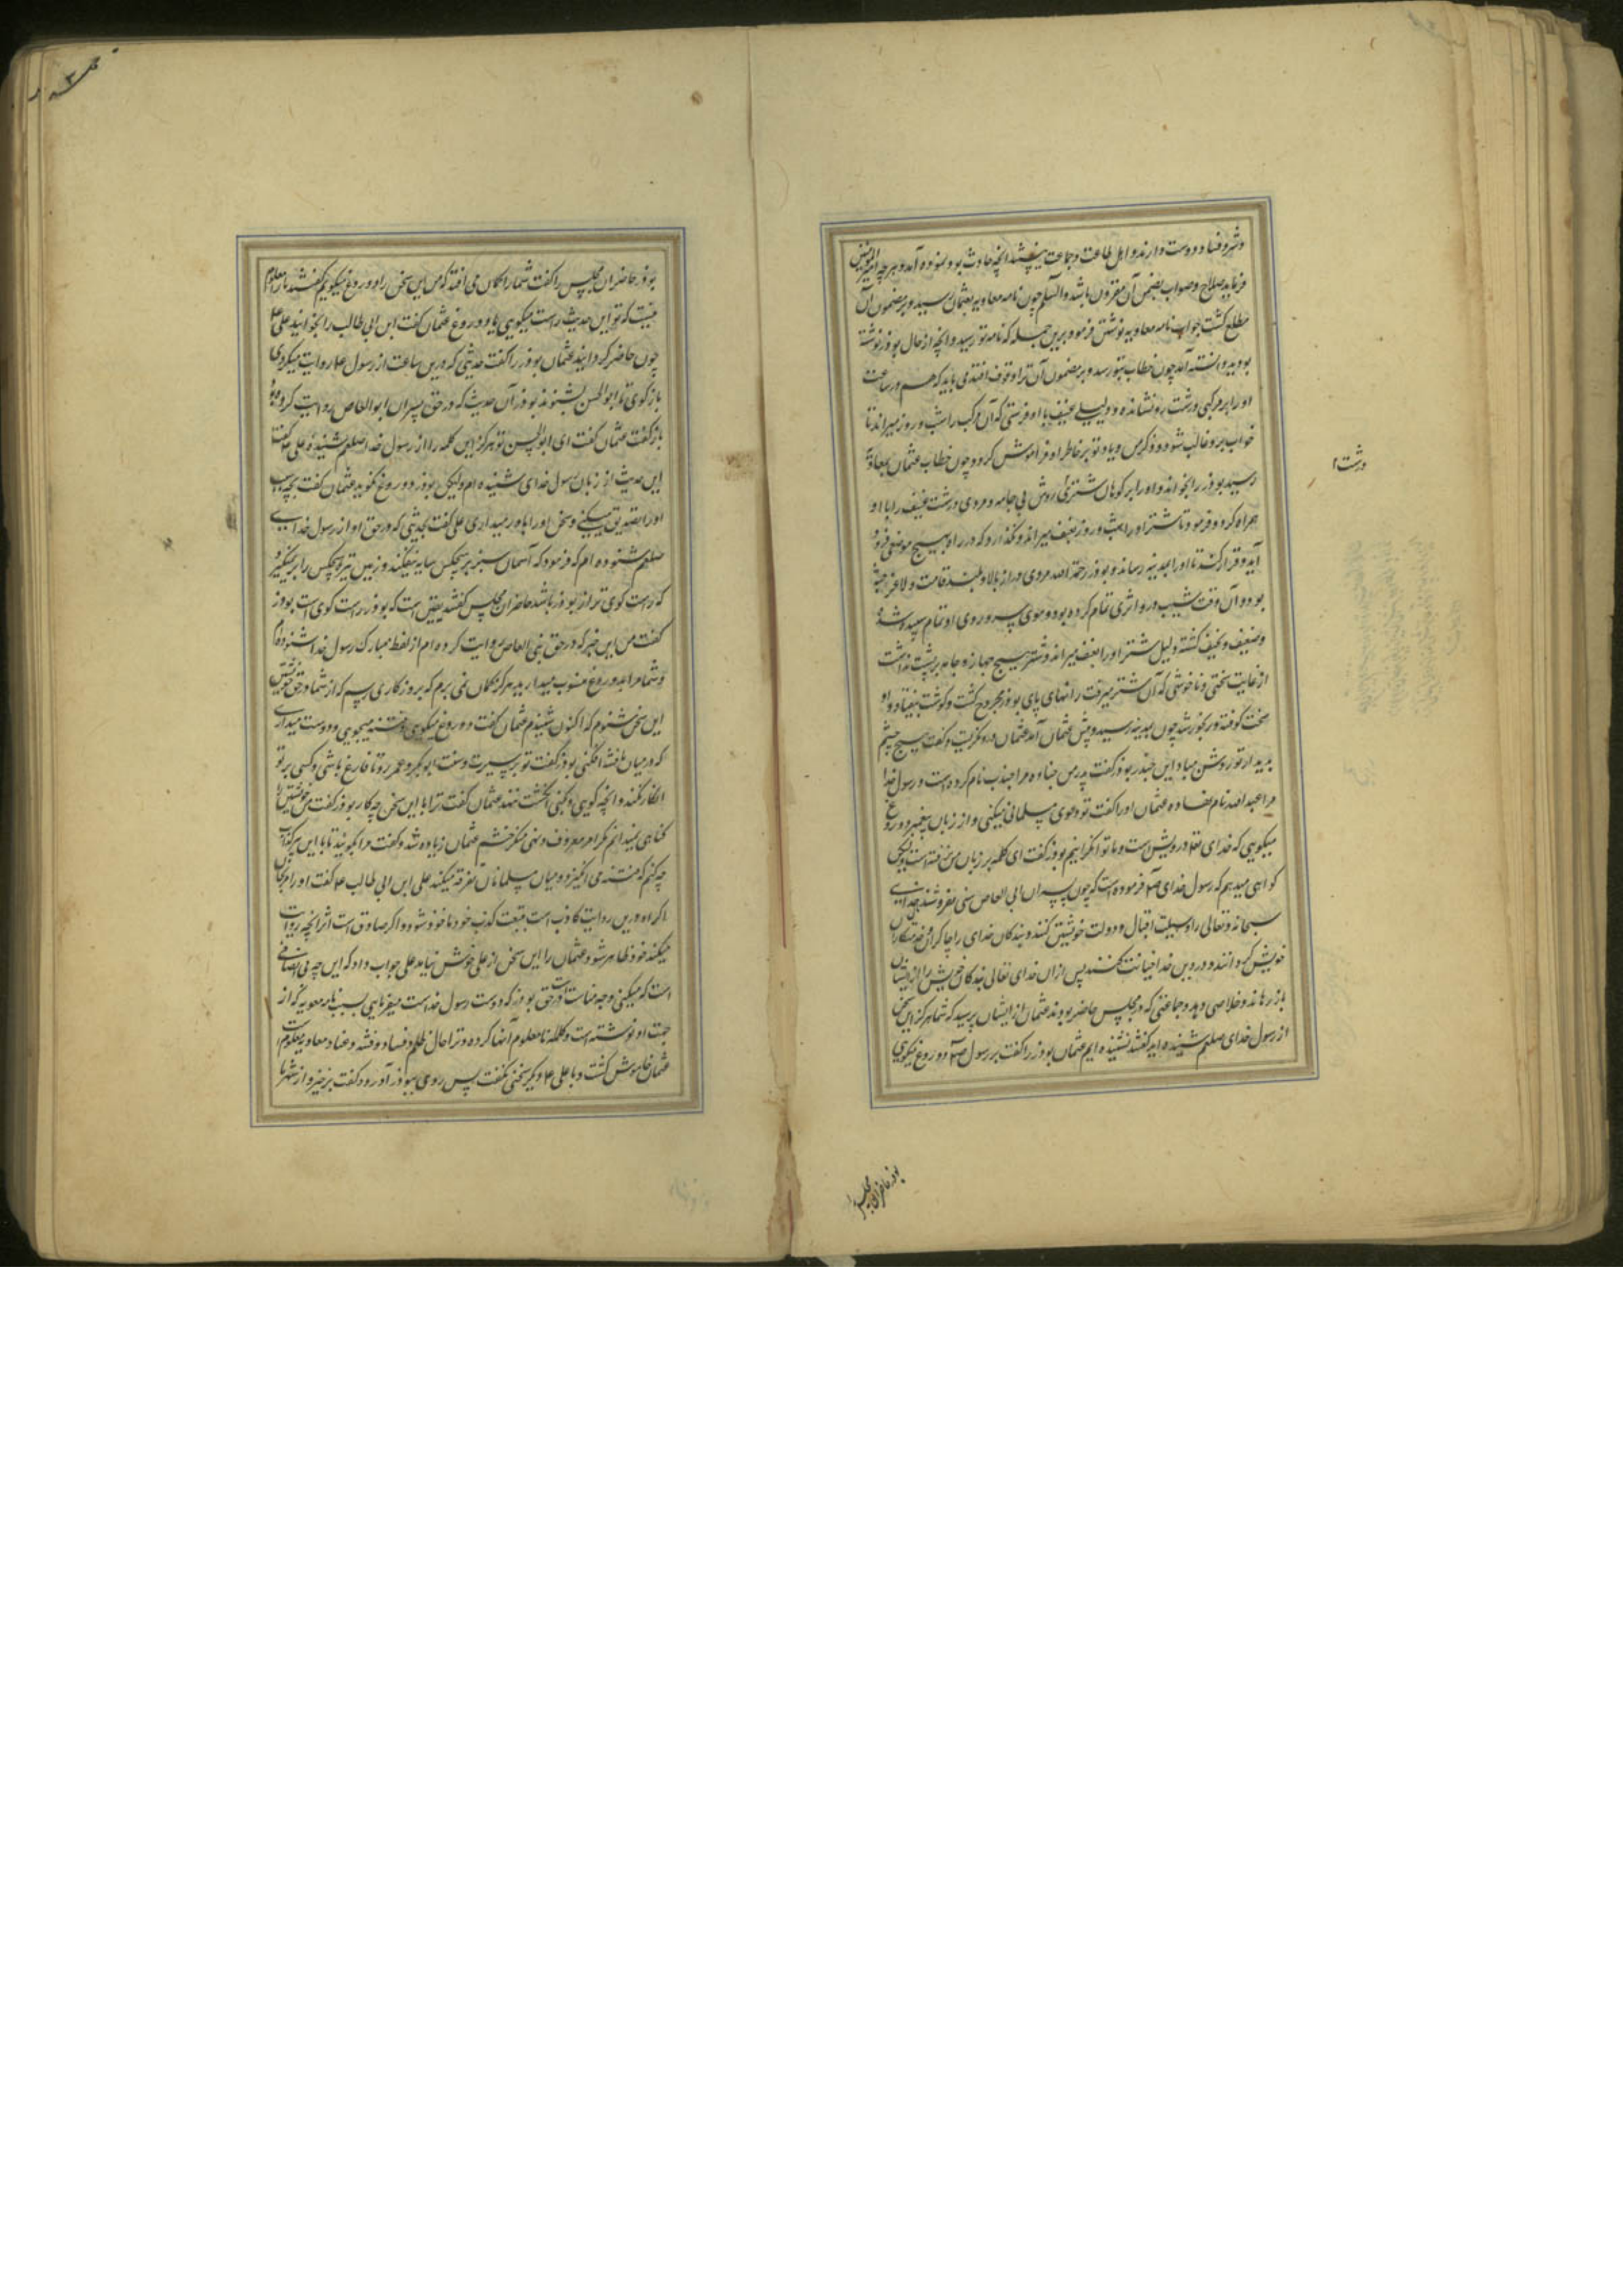 و شر و فساد دوست دارند و اهل طاعت و جماعت آنچه حادث بود نموده آمد و هر چه امیر المؤمنین
فرماید صلاح و صواب بضمن آن مقرون باشد والسلم چون نامه معاویه بعثمان رسید و بر مضمون آن
مطلع کشت جواب نامه معاویه نوشتن فرمود برین جمله که نامه تو رسید و آنچه از حال بوذر نوشته
بودی دانسته آمد چون خطاب بتو رسد و بر مضمون آن ترا وقوف افتد می باید که هم در ساعت
او را بر مرکبی درشت رو نشانده و دلیلی عنیف با او فرستی که آن مرکب را شب و روز میراند تا
خواب برو غالب شود و ذکر من و یاد تو بر خاطر او فراموش کردد چون خطاب عثمان بمعاویه
رسید بوذر را بخواند و او را بر کوهان شتری روش بی جامه و مردی درشت عنیف را با او
همراه کرد و فرمود تا شتر او را شب و روز بعنف میراند و نکذارد که در راه بهیچ موضعی فرود
آید و قرار کند تا او را بمدینه رساند و بوذر رحمه الله مردی دراز بالا و بلند قامت و لاغر جثه
بود و آن وقت شیب درو اثری تمام کرده بود و موی سر و روی او تمام سپید شده
و ضعیف و نحیف کشته دلیل شتر او را بعنف میراند و شتر هیچ جهاز و جامه بر پشت نداشت
از غایت سختی و ناخوشی که آن شتر میرفت رانهای پای بوذر مجروح کشت و کوشت بیفتاد و او
سخت کوفته و رنجور شد چون بمدینه رسید و پیش عثمان آمد عثمان درو نکریست و کفت هیچ چشم
بدیدار تو روشن مباد ای جندب بوذر کفت پدر من جناده مرا جندب نام کرده است و رسول خدا
مرا عبد الله نام نهاده عثمان او را کفت تو دعوی مسلمانی میکنی و از زبان پیغمبر دروغ
میکویی که خدای تعالی درویش است و ما توانکرانیم بوذر کفت این کلمه بر زبان من نرفته است ولیکن
کواهی میدهم که رسول خدای ص فرموده است که چون پسران ابی العاص سی نفر شوند خدای
سبحانه و تعالی را وسیلت اقبال و دولت خویشتن کنند و بندکان خدای را چاکران و خدمتکاران
خویش کردانند و در دین خدا خیانت کنند پس از آن خدای تعالی بندکان خویش را از ایشان
باز رهاند و خلاصی دهد و جماعتی که در مجلس حاضر بودند عثمان از ایشان پرسید که شما هرکز این سخن
از رسول خدای صلعم شنیده اید کفتند نشنیده ایم عثمان بوذر را کفت بر رسول ص دروغ میکویی
درشت
بوذر حاضران مجلس را
بوذر حاضران مجلس را کفت شما را کمان می افتد که من این سخن را دروغ میکویم کفتند ما را معلوم
نیست که تو این حدیث راست میکویی یا دروغ عثمان کفت ابن ابی طالب را بخوانید علی ع
چون حاضر کردانید عثمان بوذر را کفت حدیثی که درین ساعت از رسول ع روایت میکردی
باز کوی تا ابوالحسن بشنود بوذر آن حدیث که در حق پسران ابوالعاص روایت کرده بود
باز کفت عثمان کفت ای ابوالحسن تو هرکز این کلمه را از رسول خدا صلعم شنیده علی ع کفت
این حدیث از زبان رسول خدای نشنیده ام ولیکن بوذر دروغ نکوید عثمان کفت بچه سبب
او را تصدیق میکنی و سخن او را باور میداری علی کفت بحدیثی که در حق او از رسول خدای
صلعم شنوده ام که فرمود که آسمان سبز بر هیچکس سایه نیفکند و زمین تیره هیچکس را بر نکیرد
که راست کوی تر از بوذر باشد حاضران مجلس کفتند یقین است که بوذر راست کوی است بوذر
کفت من این خبر که در حق بنی العاص روایت کرده ام از لفظ مبارک رسول خدا شنوده ام
و شما مرا بدروغ منسوب میدارید هرکز کمان نمی بردم که بروزکاری رسم که از شما در حق خویشتن
این سخن شنوم که اکنون شنیدم عثمان کفت دروغ میکویی و فتنه میجویی و دوست میداری
که در میان ما فتنه افکنی بوذر کفت تو بر سیرت و سنت ابوبکر و عمر رو تا فارغ باشی و کسی بر تو
انکار نکند و آنچه کویی و کنی انکشت ننهد عثمان کفت ترا با این سخن چه کار بوذر کفت من خویشتن را
کناهی نمیدانم مکر امر معروف و نهی منکر خشم عثمان زیاده شد و کفت مرا بکویید تا با این پیر کذاب
چه کنم که فتنه می انکیزد و میان مسلمانان تفرقه میکند علی ابن ابی طالب ع کفت او را مرنجان
اکر او درین روایت کاذب است بتبعت کذب خود ماخوذ شود و اکر صادق است اثر آنچه روایت
میکند خود ظاهر شود عثمان را این سخن از علی خوش نیامد علی جواب داد که این چه بی انصافی
است که میکنی و چه مناسبت در حق بوذر که دوست رسول خداست میفرمایی بسبب نامه معویه که از
جهت او نوشته است و کلمه نامعلوم انها کرده و ترا حال ظلم و فساد و فتنه و عناد معاویه معلوم است
عثمان خاموش کشت و با علی ع دیکر سخنی نکفت پس روی ببوذر آورد و کفت برخیز و از شهر ما